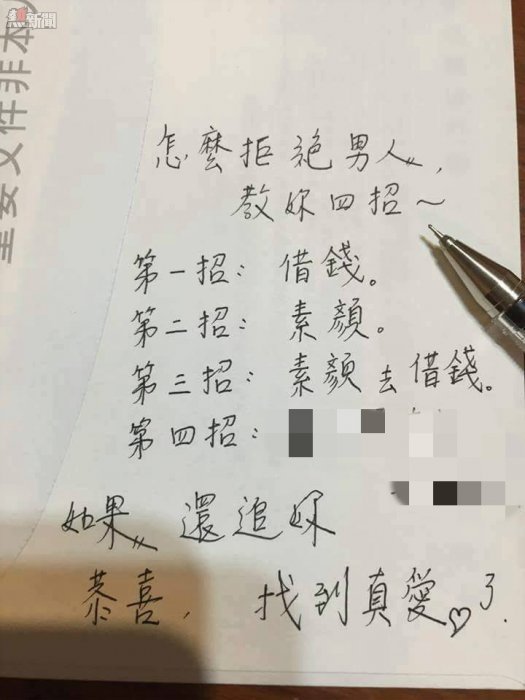 新聞
重要文件非本
怎麼拒絕男人,
教妳四招~
第一招:借錢。
第二招:素顏。
第三招:素顏去借錢。
第四招:
如果還追妳
恭喜,找到真愛♡了.